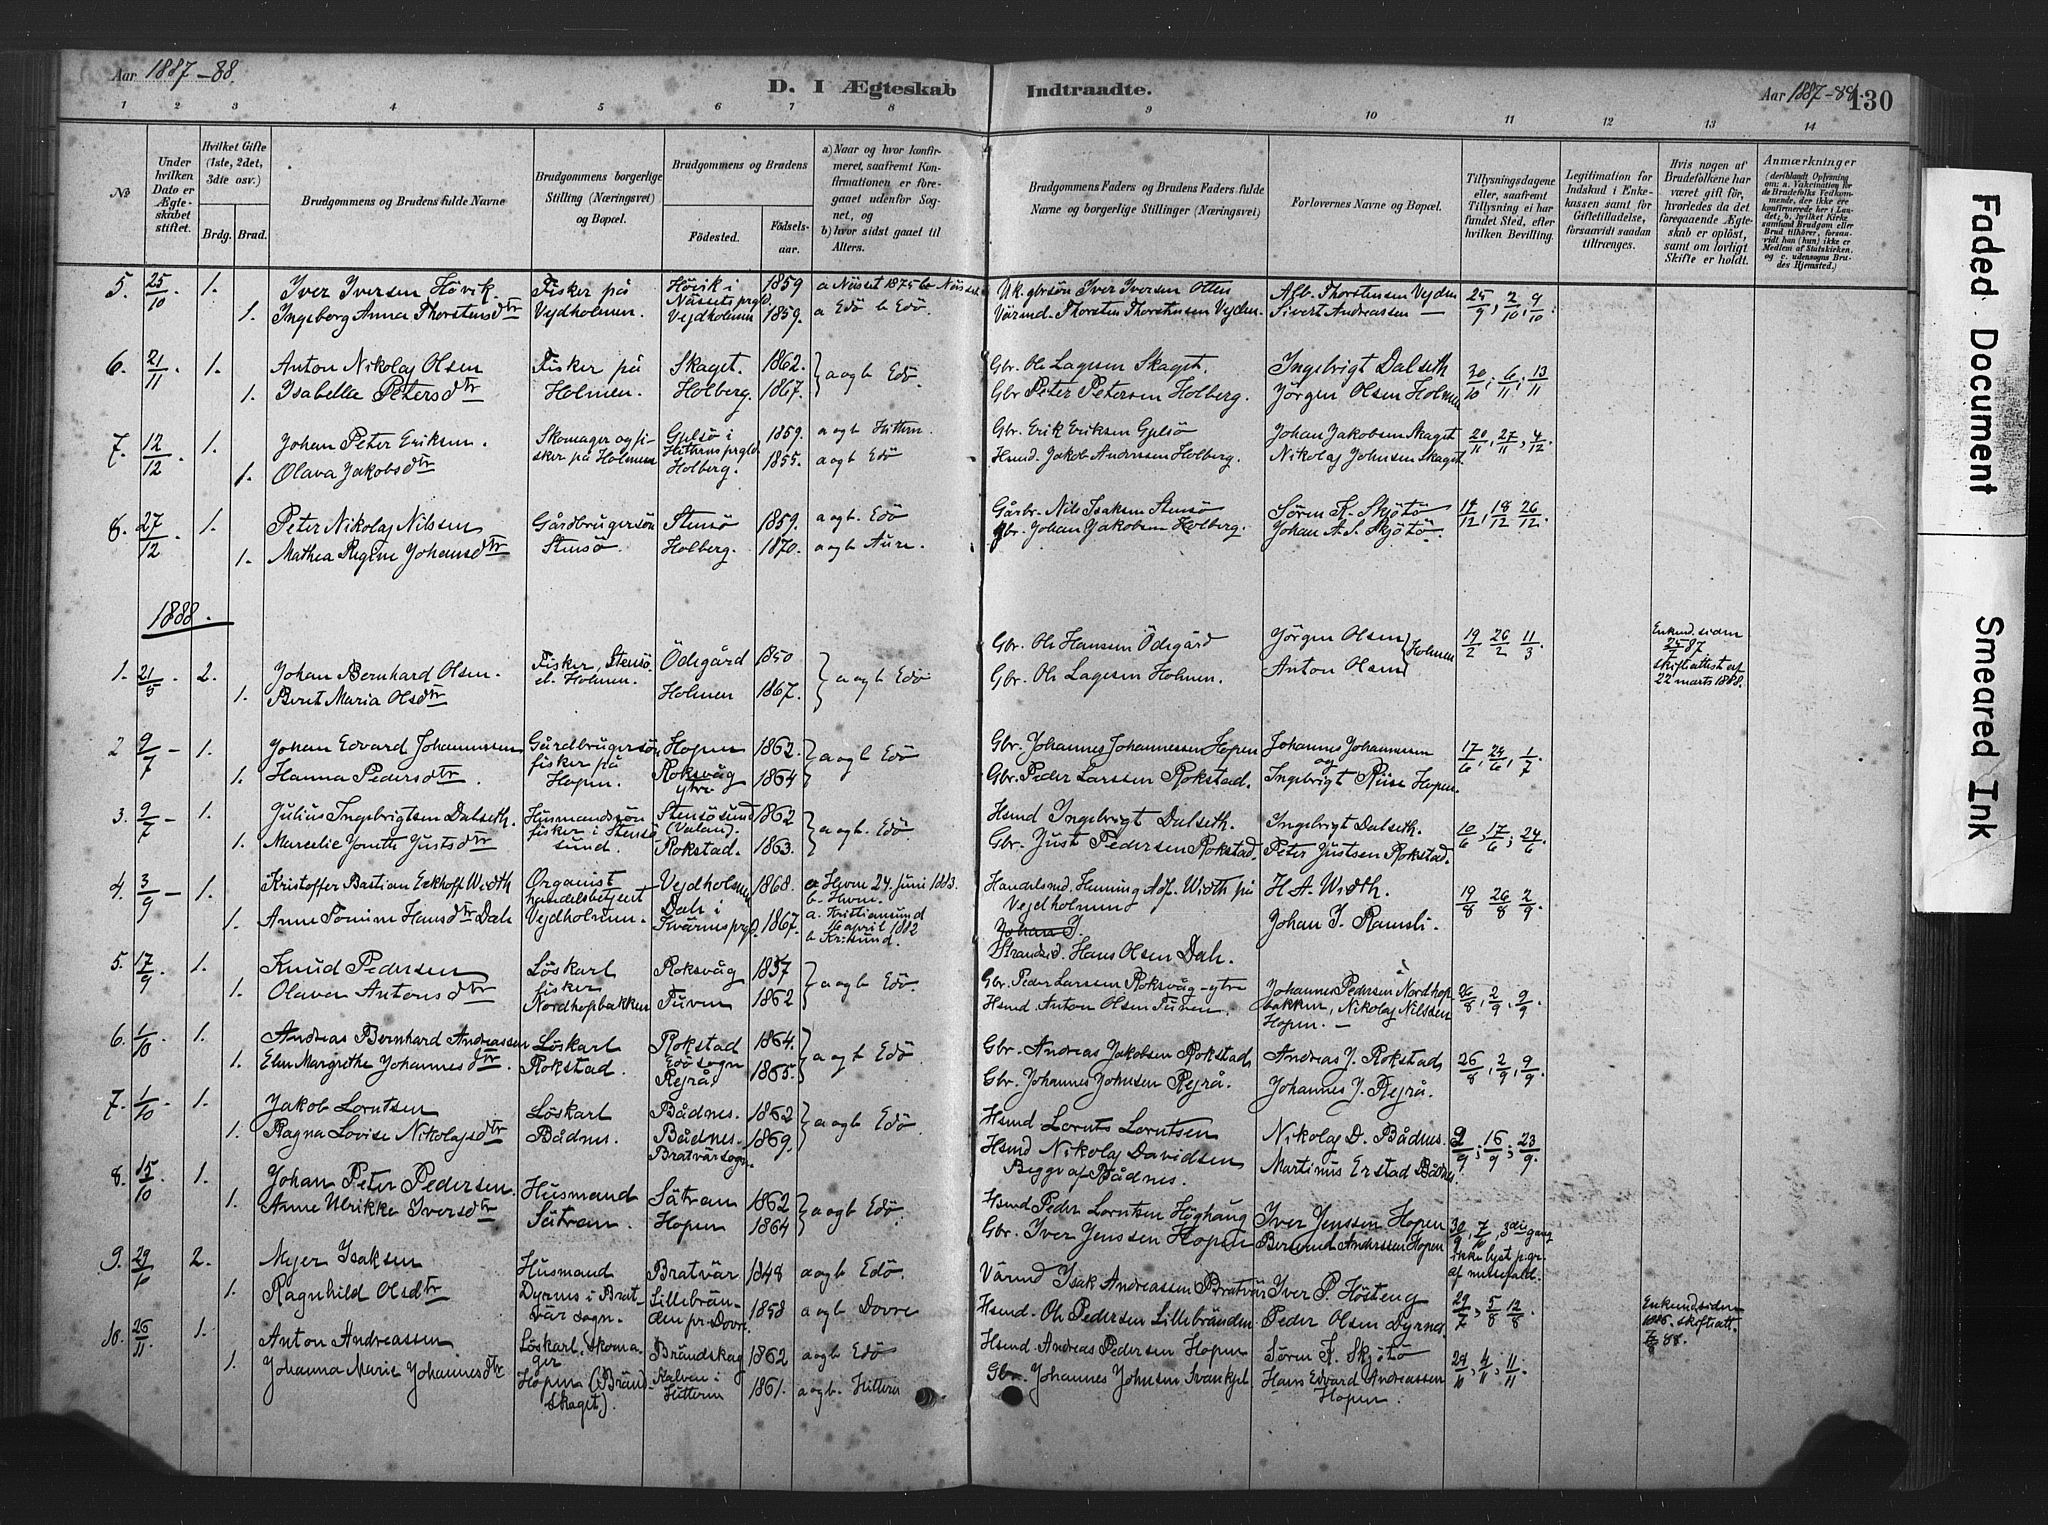 Aar 1887-88.
D. I Ægteskab Indtraadte.
Aar 1887-88. 130
1 2 3 4 5 6 7 8 9 10 11 12 13 14
No
Under hvilken Dato er Ægteskabet stiftet.
Hvilket Gifte (1ste, 2det, 3die osv.)
Brdg. Brud.
Brudgommens og Brudens fulde Navne
Brudgommens borgerlige Stilling (Næringsvei) og Bopæl.
Brudgommens og Brudens
Fødested. Fødselsaar.
a) Naar og hvor konfirmeret, saafremt Konfirmationen er foregaaet udenfor Sognet, og
b) hvor sidst gaaet til Alters.
Brudgommens Faders og Brudens Faders fulde Navne og borgerlige Stillinger (Næringsvei)
Forlovernes Navne og Bopæl.
Tillysningsdagene eller, saafremt Tillysning ei har fundet Sted, efter hvilken Bevilling.
Legitimation for Indskud i Enkekassen samt for Giftetilladelse, forsaavidt saadan tiltrænges.
Hvis nogen af Brudefolkene har været gift før, hvorledes da det foregaaende Ægteskab er opløst, samt om lovligt Skifte er holdt.
Anmærkninger (deriblandt Oplysning om: a. Vakcination for de Brudefolks Vedkommende, der ikke ere konfirmerede her i Landet; b. hvilket Kirkesamfund Brudgom eller Brud tilhører, forsaavidt han (hun) ikke er Medlem af Statskirken, og c. udensogns Brudes Hjemsted.)
5. 25/10. 1. Iver Iversen Hövik. Fisker på Hövik i Nössets prgld 1859 a Nösset 1875 b Nösset Uk. gbrsön Iver Iversen Otten Alb. Thorstensen Vejden 25/9, 2/10, 9/10.
1. Ingeborg Anna Thorstensdtr Vejdholmen. Vejdholmen 1859. a Edö b Edö. Vårmd. Thorsten Thorstensen Vejden. Sivert Andreassen —
6. 21/11. 1. Anton Nikolaj Olsen Fisker på Skaget. 1862. a og b Edö Gbr. Ole Lagesen Skaget. Ingebrigt Dalseth 30/10; 6/11; 13/11
1. Isabella Petersdtr Holmen. Holberg. 1867. Gbr Peter Petersen Holberg. Jörgen Olsen Holmen
7. 12/12. 1. Johan Peter Eriksen. Skomager og fisker på Holmen Gjelsö i Hitterns prgld 1859. a og b Hittern. Gbr. Erik Eriksen Gjelsö Johan Jakobsen Skaget 20/11, 27/11, 4/12
1. Olava Jakobsdtr Holberg. 1855. a og b Edö Hsmd. Jakob Anderssen Holberg. Nikolaj Johnsen Skaget.
8. 27/12. 1. Peter Nikolaj Nilsen Gårdbrugersön Stensö 1859. a og b. Edö Gårbr. Nils Isaksen Stensö Sören K. Skjötö 12, 18/12 26/12.
1. Mathea Regine Johansdtr Stensö. Holberg. 1870. a og b Aure. gbr. Johan Jakobsen Holberg. Johan A. S. Skjötö.
1888.
1. 21/5. 2. Johan Bernhard Olsen. Fisker, Stensö, Holmen. Ödegård 1850 a og b Edö Gbr. Ole Hansen Ödegård Jörgen Olsen Holmen 19/2 26/2 11/3 Enkemd. siden 25/7 87 skifteattest af 22 marts 1888.
1. Beret Maria Olsdtr Holmen 1867. Gbr. Ole Lagesen Holmen. Anton Olsen
2 9/7 – 1. Johan Edvard Johannessen Gårdbrugersön, fisker på Hopen. Hopen 1862. a og b Edö Gbr. Johannes Johannessen Hopen Johannes Johannessen og 17/6, 24/6, 1/7
1. Hanna Pedersdtr. Roksvåg ytre 1864 Gbr. Peder Larssen Rokstad. Ingebrigt Riise Hopen.
3. 9/7 – 1. Julius Ingebrigtsen Dalseth. Husmandssön fisker i Stensösund. Stensösund (Valan). 1862 a og b. Edö Hsmd Ingebrigt Dalseth. Ingebrigt Dalseth. 10/6; 17/6; 24/6
1. Marcelie Jonette Justsdtr Rokstad. 1863. Gbr. Just Pedersen Rokstad. Peter Justsen Rokstad.
4. 3/9 – 1. Kristoffer Bastian Eckhoff Width Organist handelsbetjent Vejdholmen. Vejdholmen 1868. a. Hevn 24. juni 1883. b. Hevn. Handelsmd. Henning Adf. Width på Vejdholmene H. A. Width. 19/8 26/8 2/9
1. Anne Tomine Hansdtr Dahl Dale i Kværnes prgld. 1867. a. Kristiansund 16 april 1882 b Kr.sund. Johan J. Strandsid. Hans Olsen Dale. Johan J. Ramsli.
5. 17/9 1. Knud Pedersen Löskarl fisker Roksvåg 1857 a og b Edö. Gbr. Peder Larssen Roksvåg-ytre Johannes Pedersen Nordhop 26/8, 2/9, 9/9.
1. Olava Antonsdtr Nordhopbakken Furen 1862 Hsmd Anton Olsen Furen. bakken, Nikolaj Nilssen Hopen. —
6. 1/10 1. Andreas Bernhard Andreassen Löskarl Rokstad Edö sogn 1864. a og b Edö Gbr. Andreas Jakobsen Rokstad Andreas J. Rokstad 26/8, 2/9, 9/9.
1. Elen Margrethe Johannesdtr. Rokstad. Rejrå. 1865. Gbr. Johannes Johnsen Rejrå. Johannes J. Rejrå.
7. 1/10 – 1. Jakob Lorntsen Löskarl Bådnes. 1862 a og b Edö. Hsmd Lornts Lorntsen Nikolaj D. Bådnes. 2/9; 16/9; 23/9.
1. Ragna Lovise Nikolajsdtr Bådnes. Bådnes. Bratvär sogn. 1869. Hsmd Nikolaj Davidsen Begge af Bådnes. Martinus Erstad Bådnes
8. 15/10 1. Johan Peter Pedersen. Husmand Sätran 1862 a og b Edö. Hsmd Peder Lorntsen Höghaug Iver Jenssen Hopen 30/9, 7/10, 3die gang ikke lyst p.gr. af messefald.
1. Anne Ulrikke Iversdtr Sätran. Hopen 1864 Gbr. Iver Jenssen Hopen Bersvend Anderssen Hopen
9. 29/10 2. Mejer Isaksen Husmand Bratvär 1848 a og b Edö. Vårmd Isak Andreassen Bratvär Iver P. Hösteng 29/7, 5/8 12/8 Enkemd siden 1886. skifteatt. 88.
1. Ragnhild Olsdtr Dyrnes i Bratvär sogn. Lillebränden pr. Dovre 1858 a og b Dovre Hsmd. Ole Pedersen Lillebränden Peder Olsen Dyrnes.
10. 26/11 1. Anton Andreassen Löskarl, Skomager Brändskag 1862 a og b Edö Hsmd. Andreas Pedersen Hopen Sören K. Skjötö 28/10, 4/11; 11/11
1. Johanna Marie Johannesdtr Hopen (Brändskaget). Kalven i Hittern 1861. a og b. Hittern Gbr. Johannes Johnsen Svankjel Hans Edvard Andreassen Hopen.
Faded Document
Smeared Ink